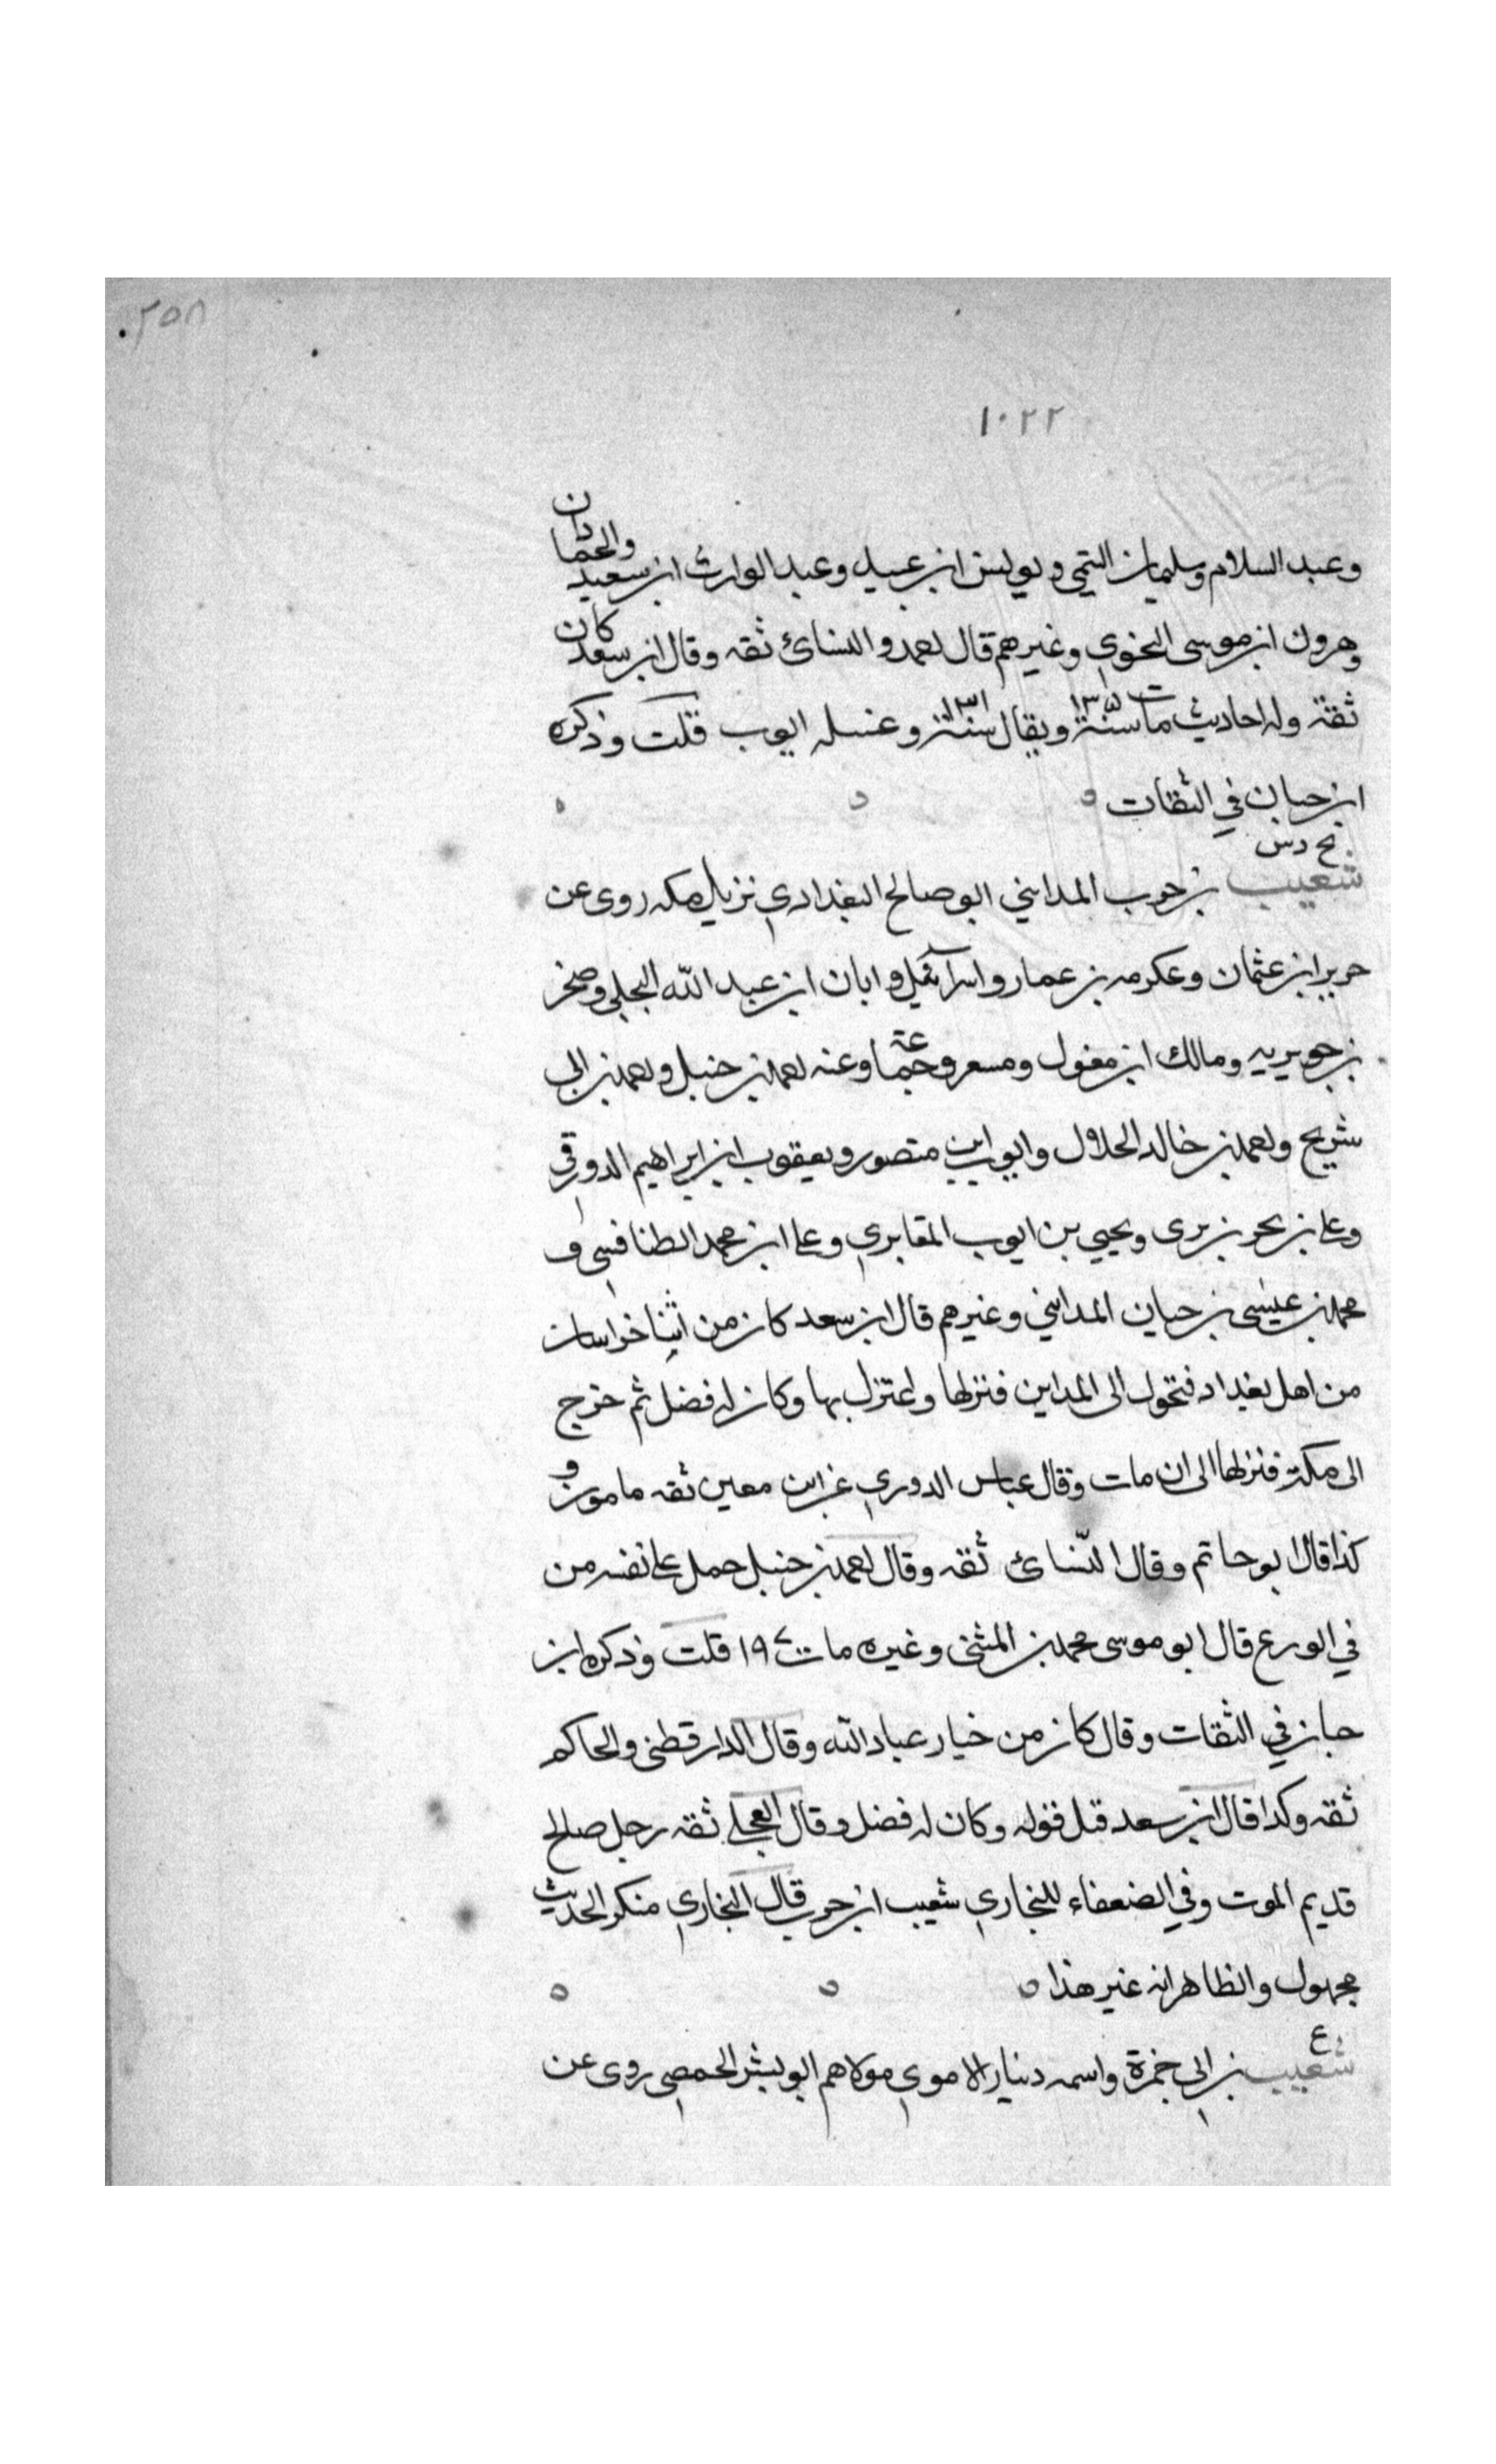 ٢٥٨
١٠٢٢
وعبد السلام وسليمان التيمي ويونس ابن عبيد وعبد الوارث ابن سعيد والحمادان
وهرون ابن موسى النحوي وغيرهم قال احمد والنسائي ثقه وقال ابن سعد كان
ثقة وله احاديث مات سنة ١٣٥ ويقال سنة ١٣١ وغسله ايوب قلت وذكره
ابن حبان في الثقات
خ د س
شعيب بن حرب المدايني ابو صالح البغدادي نزيل مكه روى عن
حريز ابن عثمان وعكرمه بن عمار واسرآئيل وابان ابن عبد الله البجلي وصخر
بن جويريه ومالك ابن مغول ومسعر وجماعة وعنه احمد بن حنبل واحمد بن ابي
شريح واحمد بن خالد الخلال وايوب ابن منصور ويعقوب ابن ابراهيم الدورقي
وعلي بن بحر بن بري ويحيي بن ايوب المقابري وعلي ابن محمد الطنافسي و
محمد بن عيسى بن حيان المدايني وغيرهم قال ابن سعد كان من ابنا خراسان
من اهل بغداد فتحول الى المداين فنزلها واعتزل بها وكان له فضل ثم خرج
الى مكة فنزلها الى ان مات وقال عباس الدوري عن ابن معين ثقه مامون و
كذا قال ابو حاتم وقال النسائي ثقه وقال احمد بن حنبل حمل على نفسه من
في الورع قال ابو موسى محمد بن المثنى وغيره مات ١٩٧ قلت وذكره ابن
حبان في الثقات وقال كان من خيار عباد الله وقال الدارقطني والحاكم
ثقه وكدا قال ابن سعد قبل قوله وكان له فضل وقال العجلي ثقه رجل صالح
قديم الموت وفي الضعفاء للبخاري شعيب ابن حرب قال البخاري منكر الحديث
مجهول والظاهر انه غير هذا
ع
شعيب بن ابي حمزة واسمه دينار الاموي مولاهم ابو بشر الحمصي روى عن